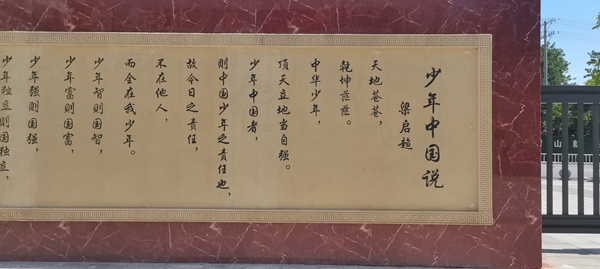 少年中国说
梁启超
天地苍苍，
乾坤茫茫。
中华少年，
顶天立地当自强。
少年中国者，
则中国少年之责任也，
故今日之责任，
不在他人，
而全在我少年。
少年智则国智，
少年富则国富，
少年强则国强，
少年独立则国独立，